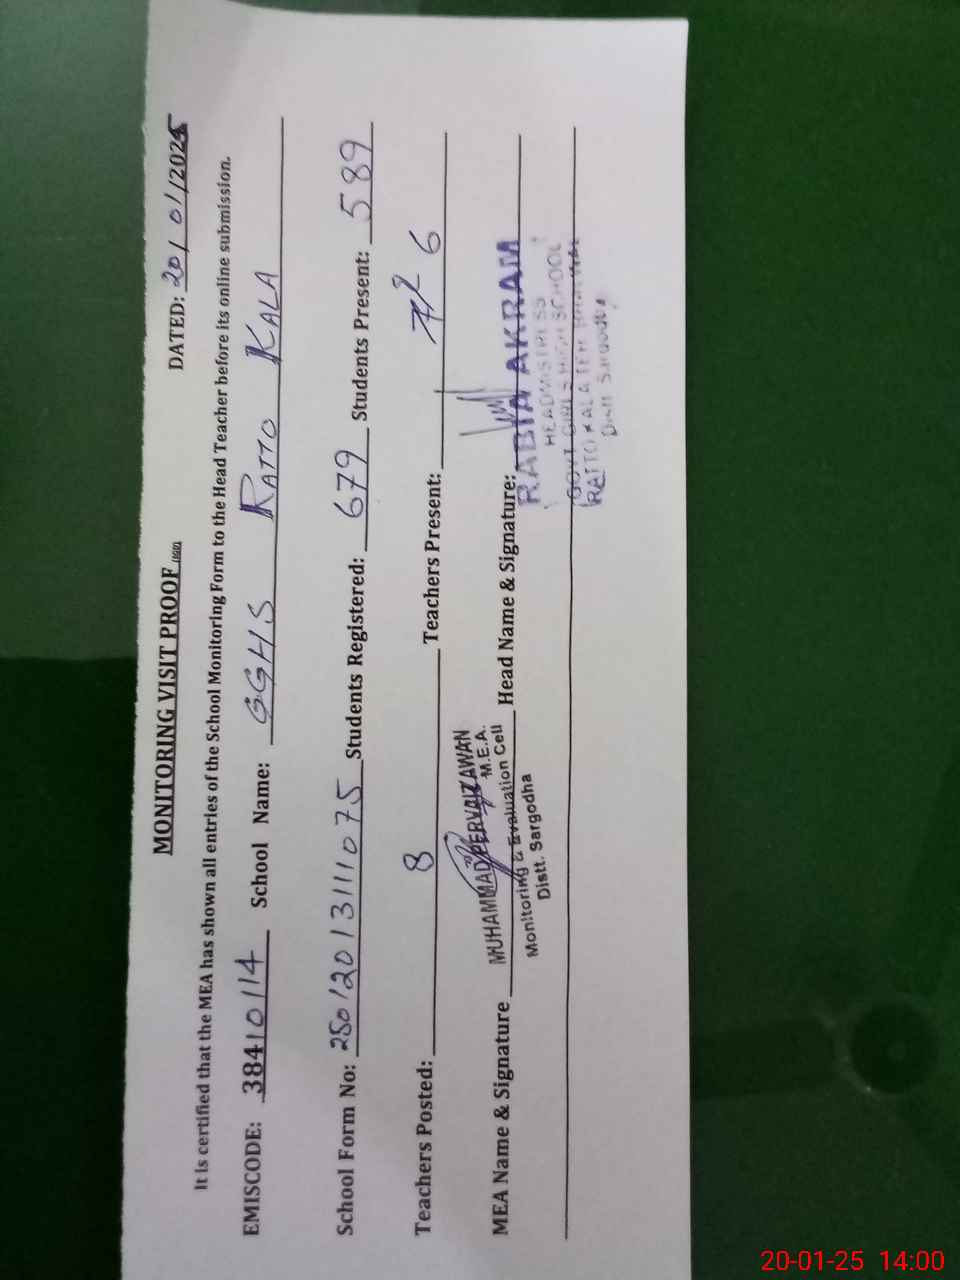 MONITORING VISIT PROOF
DATED: 20/01/2025
It is certified that the MEA has shown all entries of the School Monitoring Form to the Head Teacher before its online submission.
EMISCODE: 38410114 School Name: GGHS RATTO KALA
School Form No: 250120131111075 Students Registered: 679 Students Present: 589
Teachers Posted: 8 Teachers Present: 6
MEA Name & Signature MUHAMMAD PERVAIZ AWAN Head Name & Signature: RABIA AKRAM
M.E.A.
Monitoring & Evaluation Cell
Distt. Sargodha
HEADMISTRESS
GOVT GIRLS HIGH SCHOOL
RATTO KALA TEH
Distt Sargodha
20-01-25 14:00